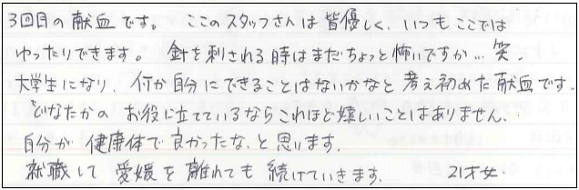 3回目の献血です。 ここのスタッフさんは皆優しく、いつもここでは
ゆったりできます。 針を刺される時はまだちょっと怖いですが… 笑。
大学生になり、何か自分にできることはないかなと考え初めた献血です。
どなたかの お役に立てているならこれほど嬉しいことはありません。
自分が 健康体で良かったな、と思います。
就職して 愛媛を離れても 続けていきます。 21才女.